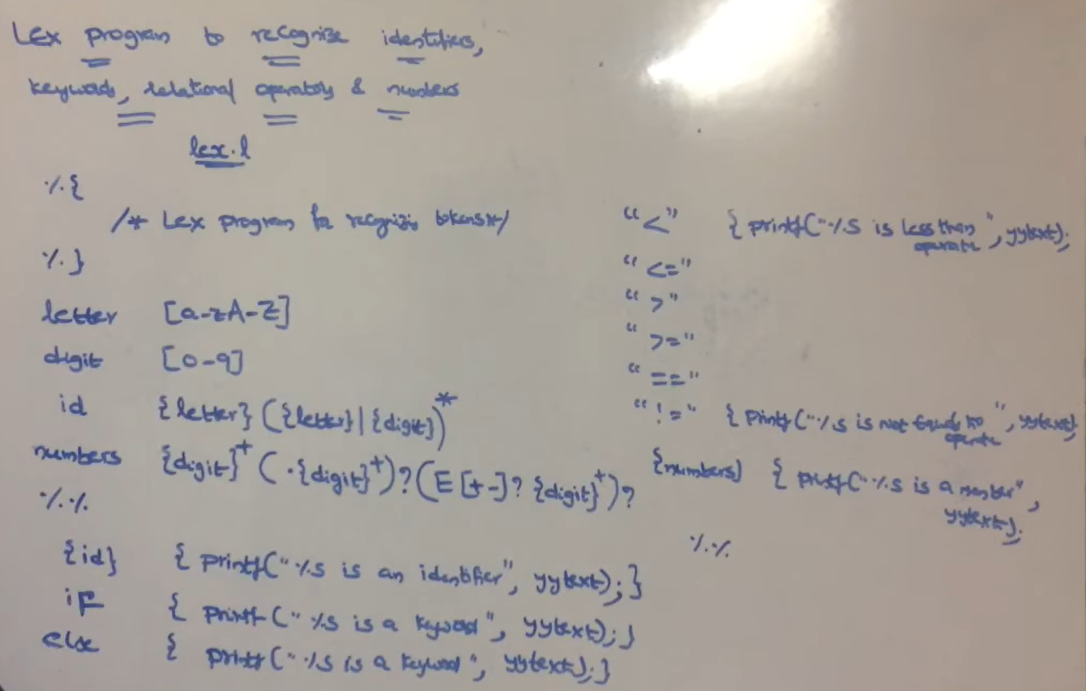 Lex program to recognise identifiers,
keywords, relational operators & numbers
lex.l
%{
/* Lex program for recognizing tokens */
%}
letter [a-zA-Z]
digit [0-9]
id {letter}({letter}|{digit})*
numbers {digit}+(.{digit}+)?(E[+-]?{digit}+)?
%%
{id} {printf("%s is an identifier", yytext);}
if {printf("%s is a keyword", yytext);}
else {printf("%s is a keyword", yytext);}
"<" {printf("%s is less than operator", yytext);
"<="
">"
">="
"=="
"!=" {printf("%s is not equals to operator", yytext)
{numbers} {printf("%s is a number",
yytext);
%%